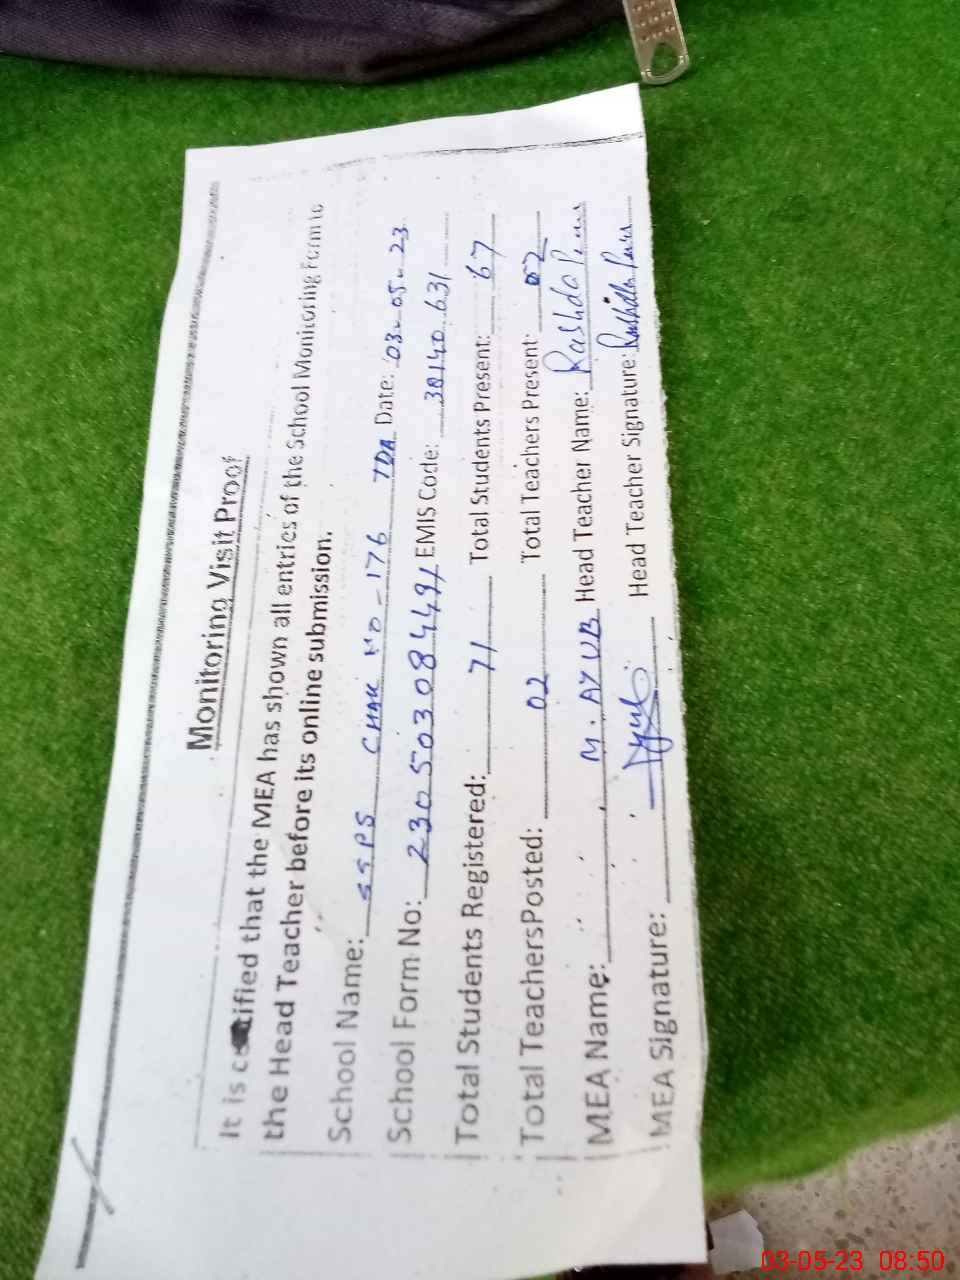 Monitoring Visit Proof
It is certified that the MEA has shown all entries of the School Monitoring Form to
the Head Teacher before its online submission.
School Name: SSPS CHAK NO-176 TDA Date: 03-05-23
School Form No: 23050308449/ EMIS Code: 38140631
Total Students Registered: 71 Total Students Present: 67
Total TeachersPosted: 02 Total Teachers Present: 02
MEA Name: M. AYUB Head Teacher Name: Rashda
MEA Signature: Head Teacher Signature:
03-05-23 08:50